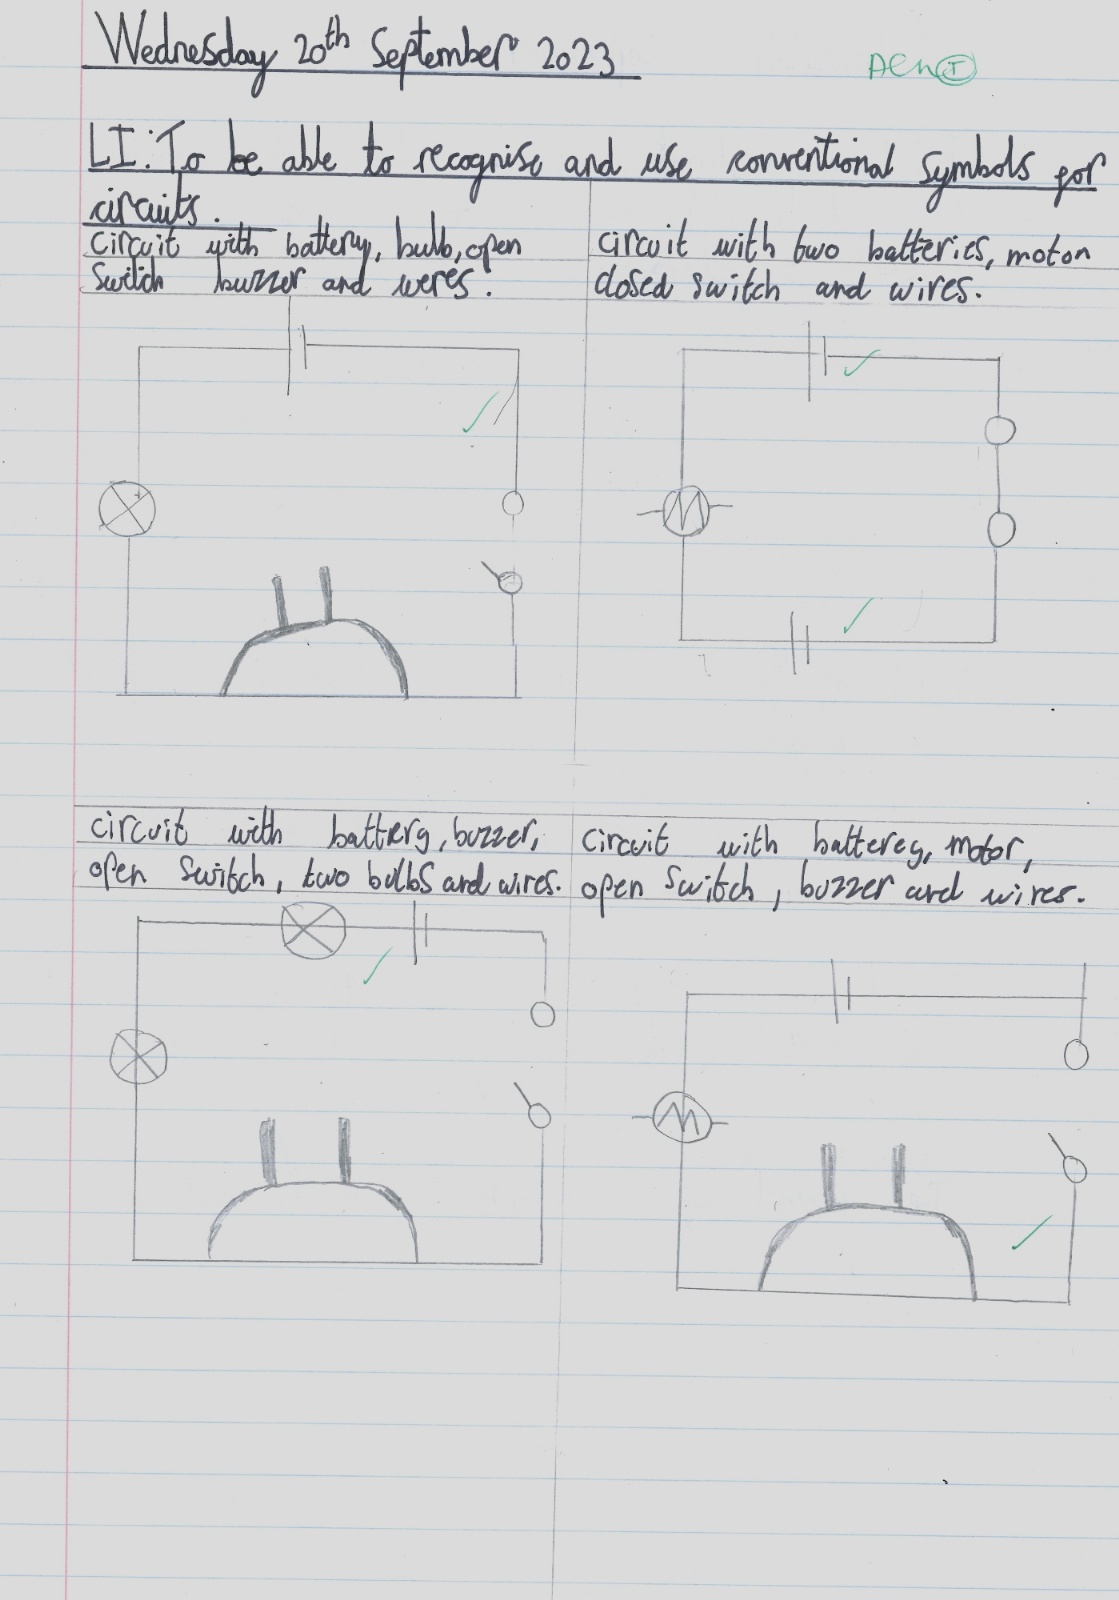 Wednesday 20th September 2023
LI: To be able to recognise and use conventional symbols for
circuits.
circuit with battery, bulb, open
switch buzzer and weres.
circuit with two batteries, moton
closed switch and wires.
circuit with batterg, buzzer,
open switch, two bulbs and wires.
circuit with batterey, motor,
open switch, buzzer and wires.